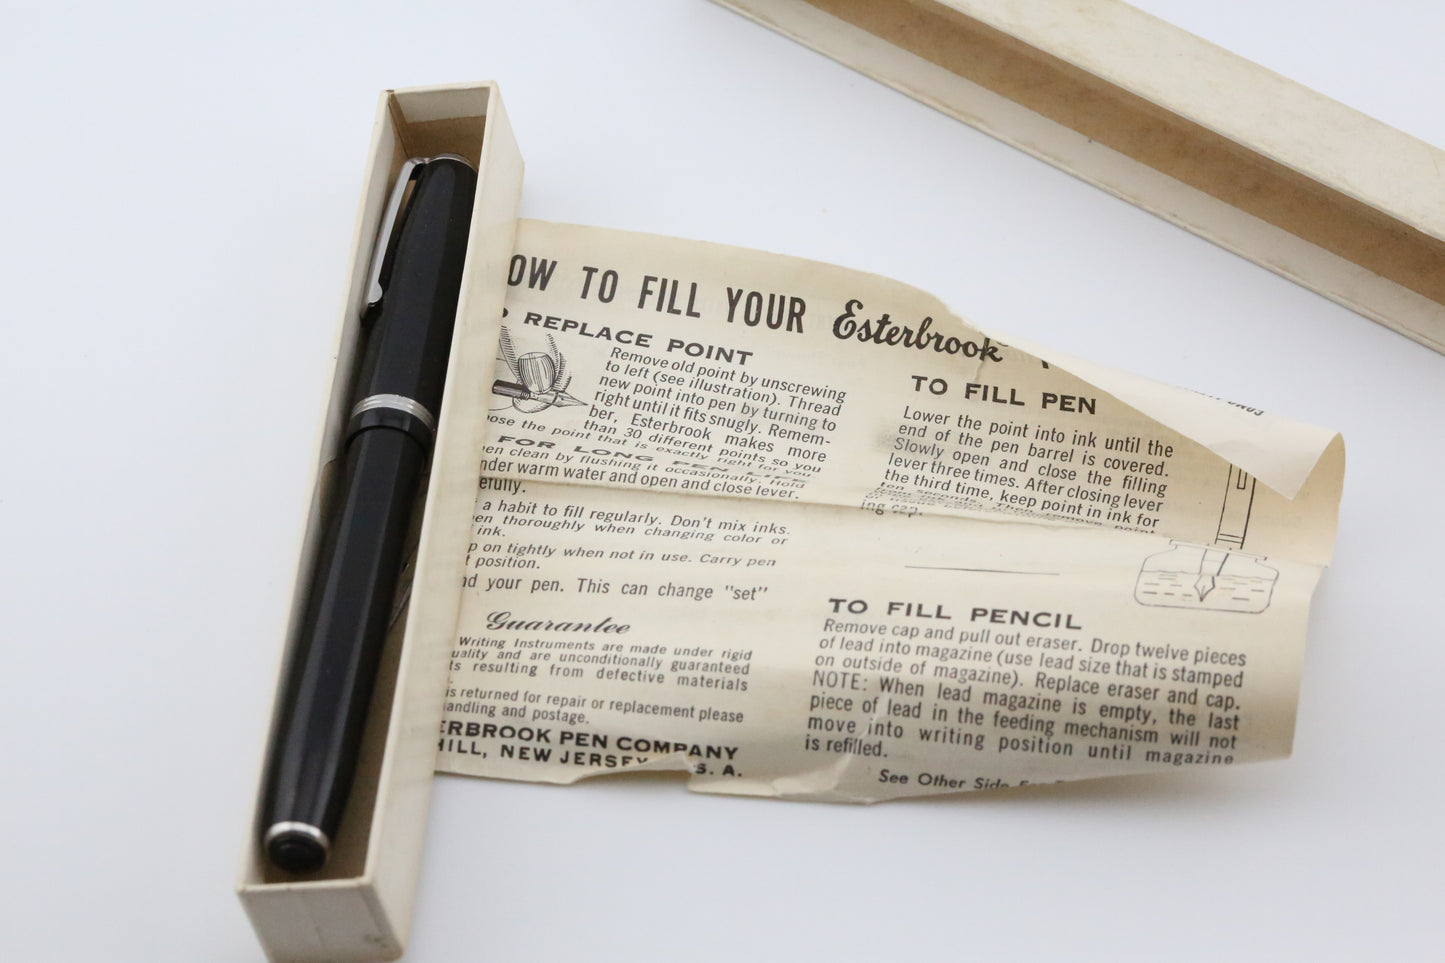 OW TO FILL YOUR Esterbrook
REPLACE POINT
Remove old point by unscrewing
to left (see illustration). Thread
new point into pen by turning to
right until it fits snugly. Remem-
ber, Esterbrook makes more
than 30 different points so you
ose the point that is exactly right for you.
FOR LONG PEN LIFE
en clean by flushing it occasionally. Hold
nder warm water and open and close lever.
efully.
a habit to fill regularly. Don't mix inks.
en thoroughly when changing color or
ink.
p on tightly when not in use. Carry pen
t position.
nd your pen. This can change "set"
Guarantee
Writing Instruments are made under rigid
uality and are unconditionally guaranteed
ts resulting from defective materials
is returned for repair or replacement please
andling and postage.
ERBROOK PEN COMPANY
HILL, NEW JERSEY S. A.
TO FILL PEN
Lower the point into ink until the
end of the pen barrel is covered.
Slowly open and close the filling
lever three times. After closing lever
the third time, keep point in ink for
ten seconds. Then remove point
ing
TO FILL PENCIL
Remove cap and pull out eraser. Drop twelve pieces
of lead into magazine (use lead size that is stamped
on outside of magazine). Replace eraser and cap.
NOTE: When lead magazine is empty, the last
piece of lead in the feeding mechanism will not
move into writing position until magazine
is refilled.
See Other Side